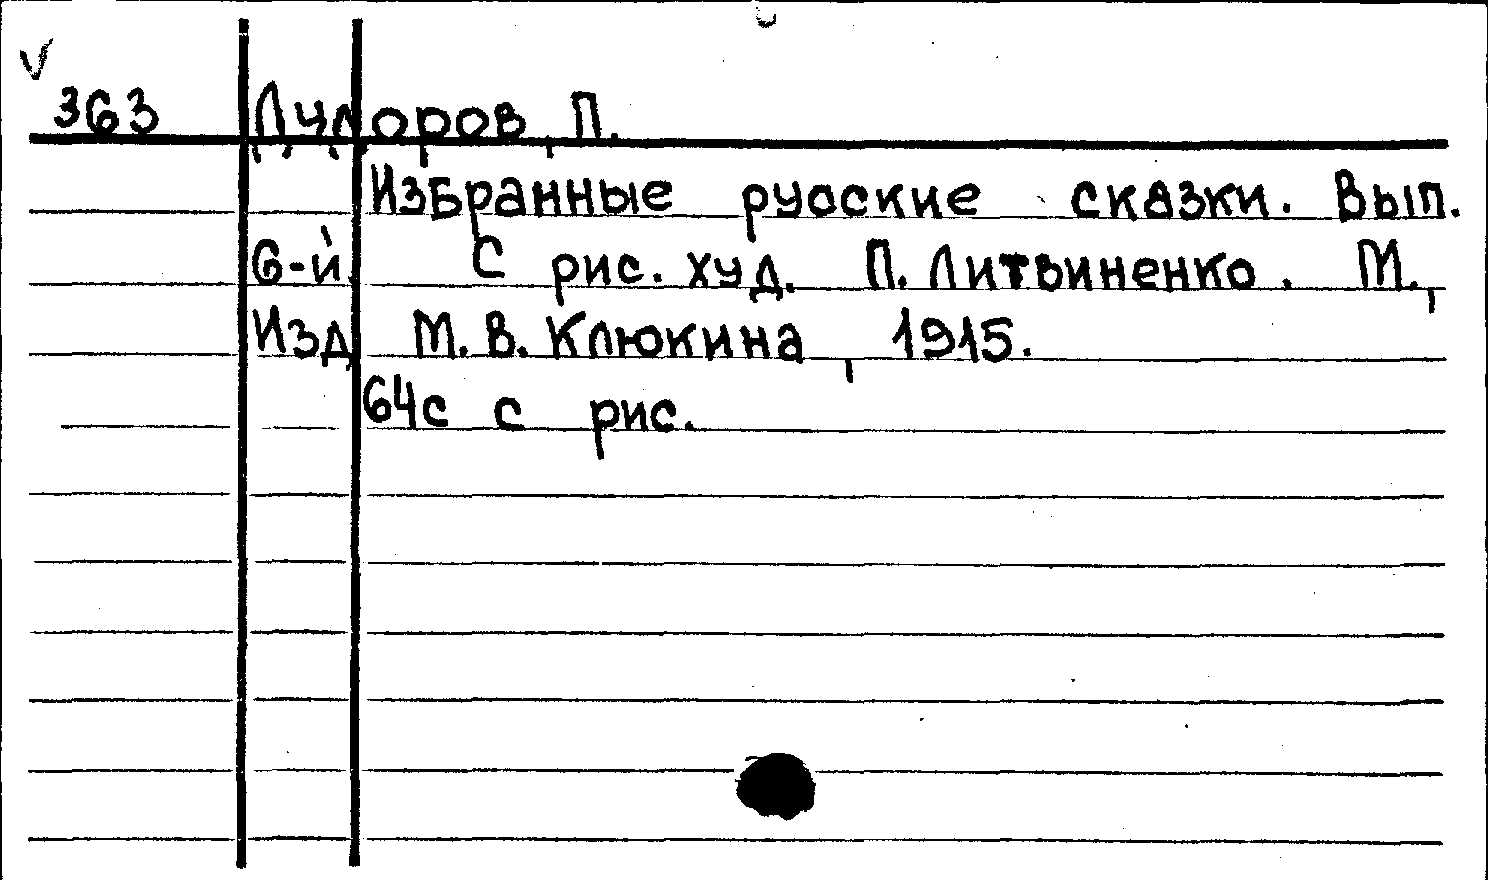 363 Дудоров, П.
Избранные русские сказки. Вып.
6-й. С рис. худ. П. Литвиненко. М.,
Изд. М. В. Клюкина, 1915.
64с с рис.